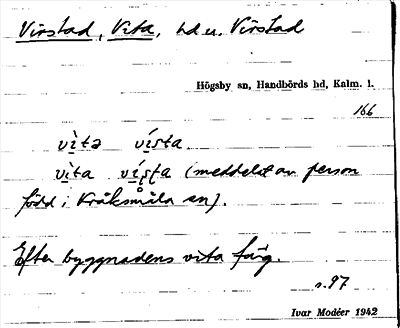 Virstad, Vita, hd u. Virstad
Högsby sn, Handbörds hd, Kalm. l.
166
vìtə vísta
vìta víṣṭa (meddelat av person
född i Kråksmåla sn).
Efter byggnadens vita färg.
s. 97
Ivar Modéer 1942